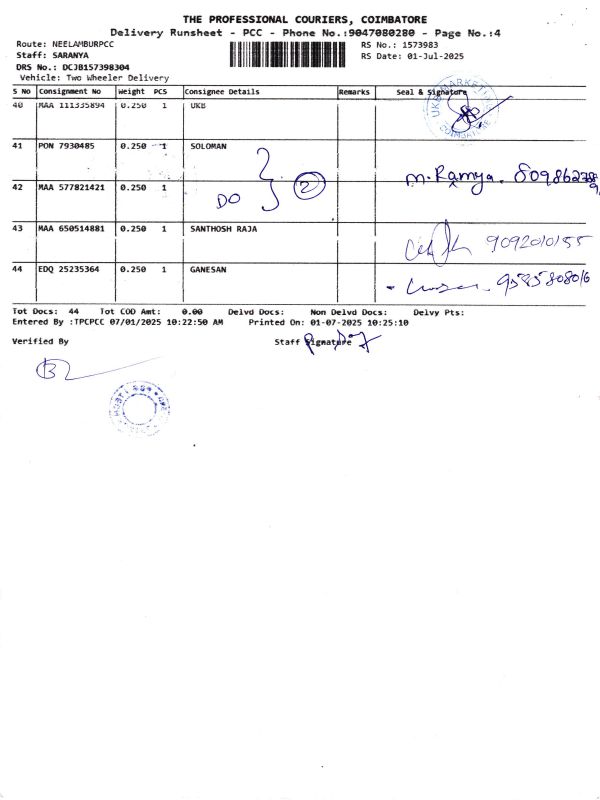 THE PROFESSIONAL COURIERS, COIMBATORE
Delivery Runsheet - PCC - Phone No.:9047080280 - Page No.:4
Route: NEELAMBURPCC RS No.: 1573983
Staff: SARANYA RS Date: 01-Jul-2025
DRS No.: DCJB157398304
Vehicle: Two Wheeler Delivery
S No Consignment No Weight PCS Consignee Details Remarks Seal & Signature
40 MAA 111335894 0.250 1 UKB
UKB MARKETING COIMBATORE
41 PON 7930485 0.250 1 SOLOMAN
42 MAA 577821421 0.250 1 DO 2 M. Ramya.
43 MAA 650514881 0.250 1 SANTHOSH RAJA 9092010155
44 EDQ 25235364 0.250 1 GANESAN
Tot Docs: 44 Tot COD Amt: 0.00 Delvd Docs: Non Delvd Docs: Delvy Pts:
Entered By :TPCPCC 07/01/2025 10:22:50 AM Printed On: 01-07-2025 10:25:10
Verified By Staff Signature